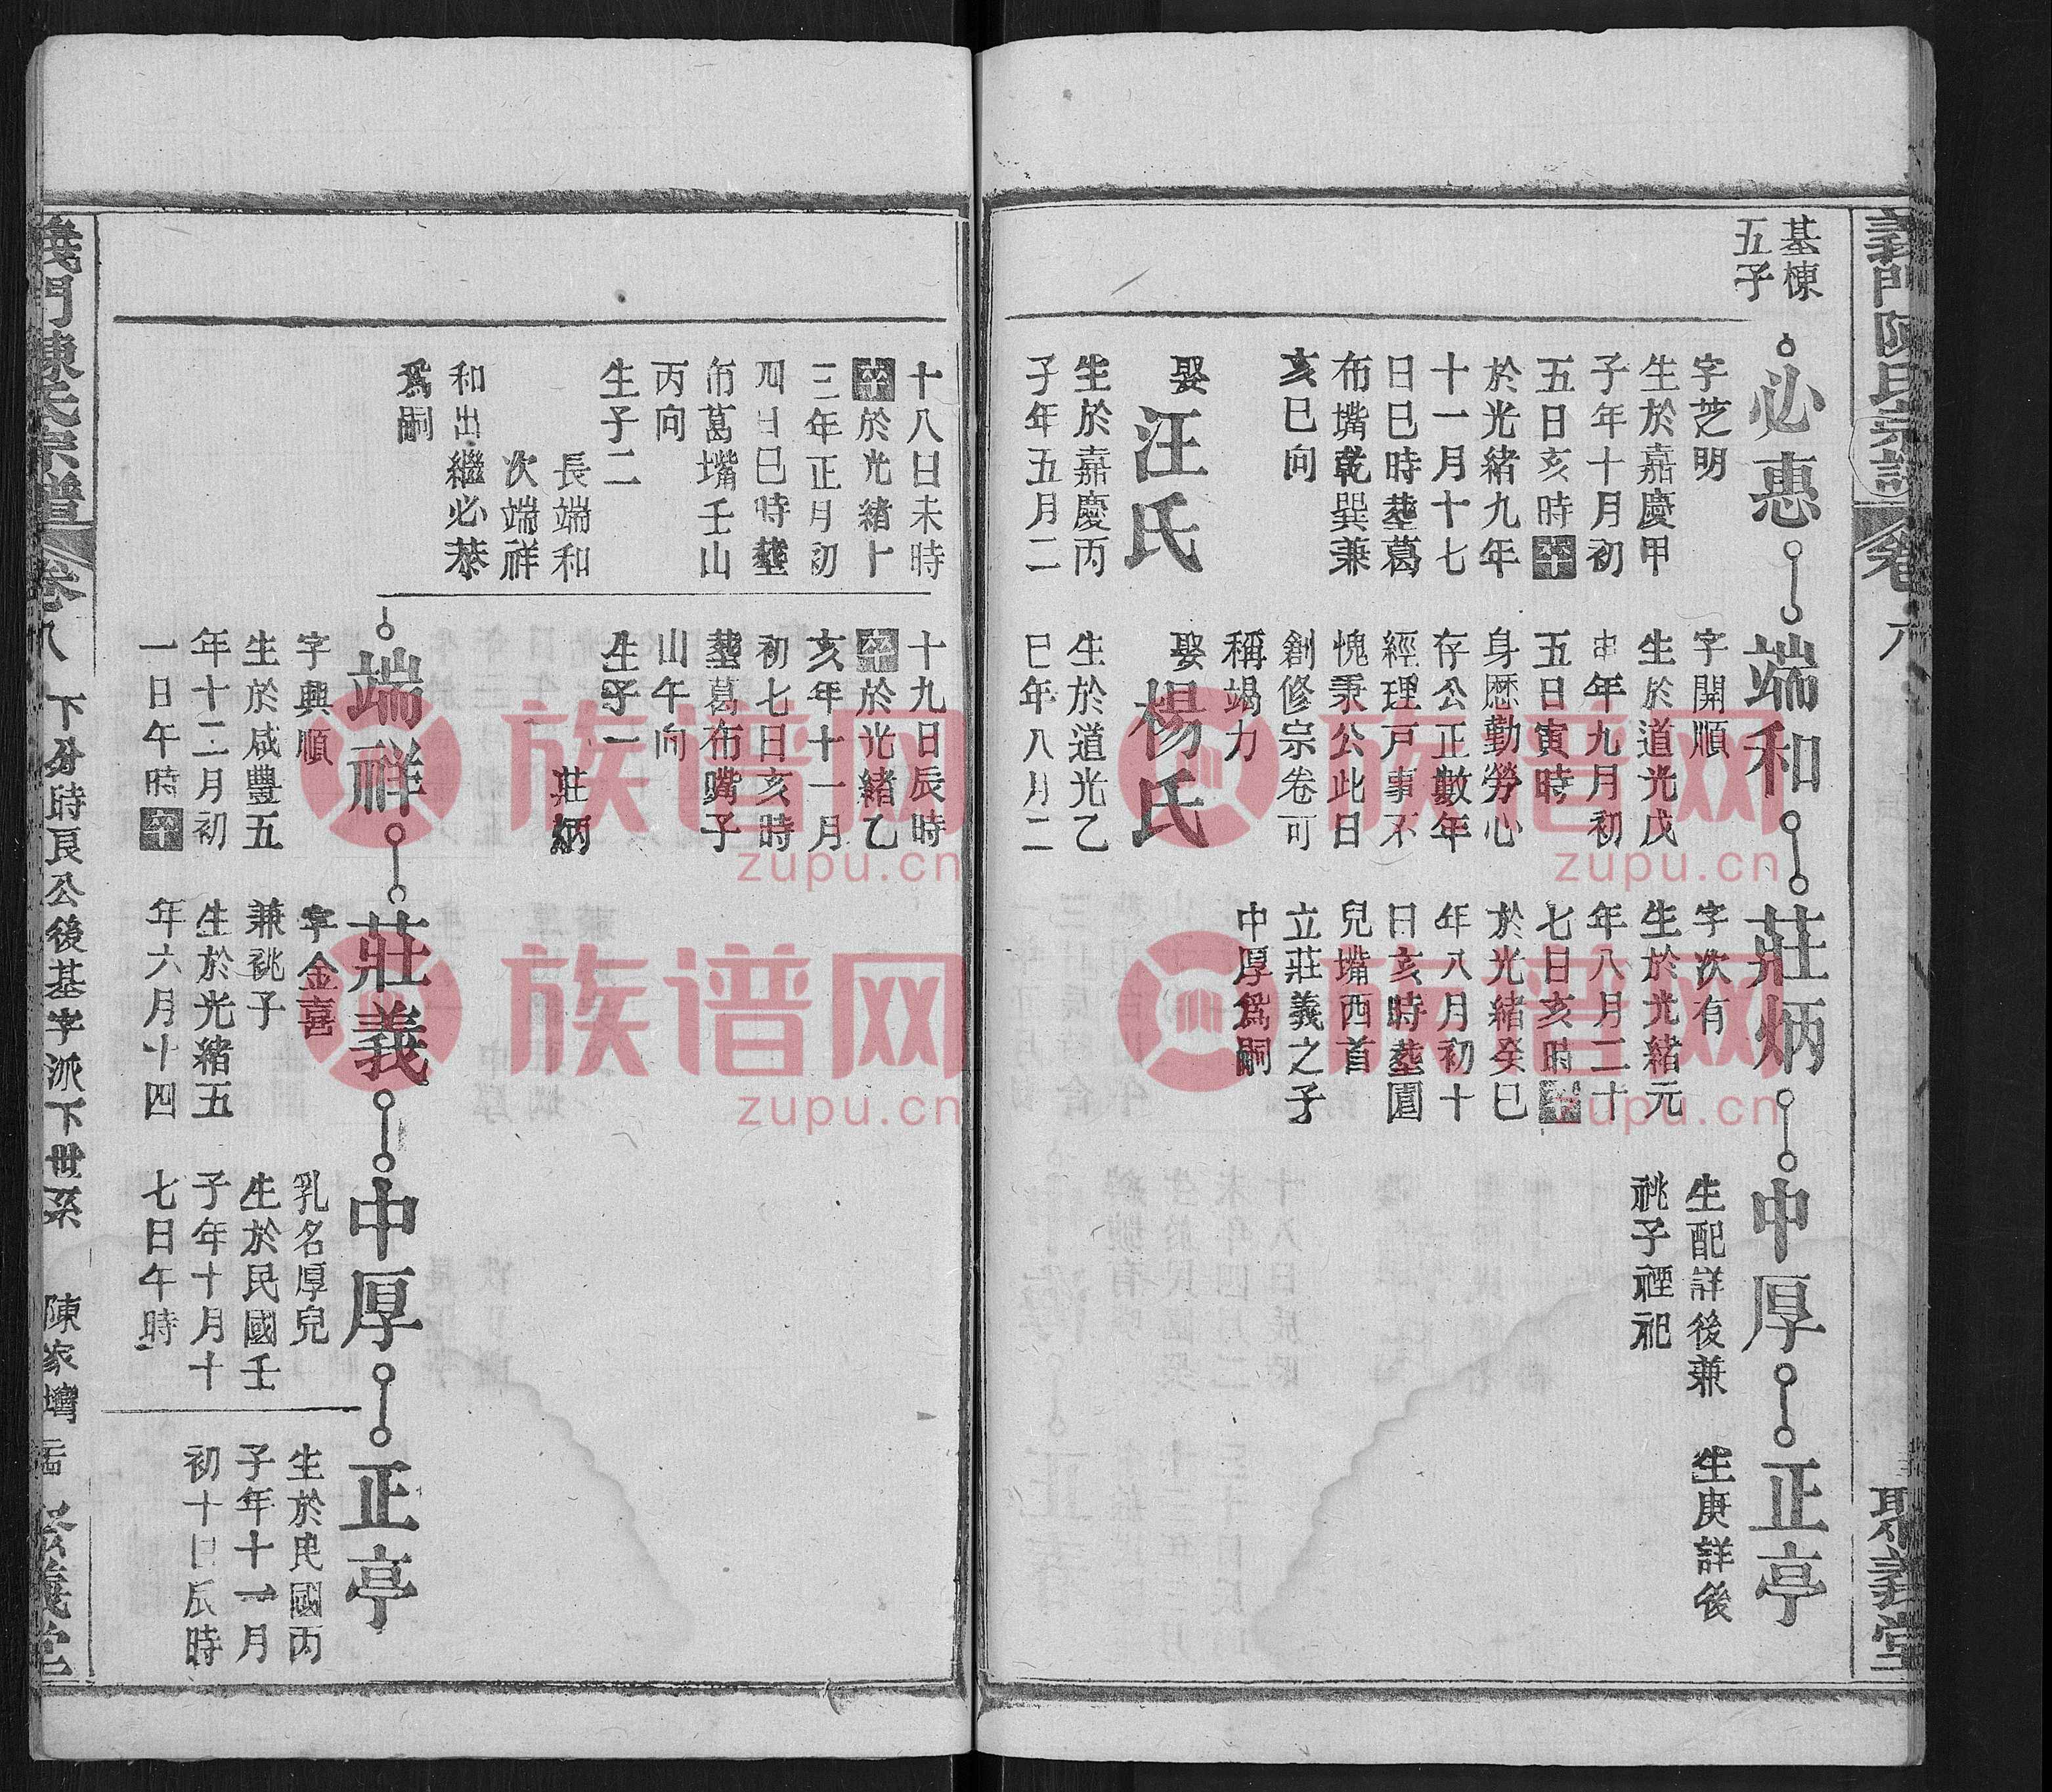 義門陳氏宗譜
卷八
聚義堂
基棟
五子
必惠
字芝明
生於嘉慶甲
子年十月初
五日亥時卒
於光緒九年
十一月十七
日巳時塟葛
布嘴乾巽兼
亥巳向
娶汪氏
生於嘉慶丙
子年五月二
端和
字開順
生於道光戊
申年九月初
五日寅時
身歴勤勞心
存公正數年
經理戸事不
愧秉公此日
創修宗卷可
稱竭力
娶楊氏
生於道光乙
巳年八月二
莊炳
字次有
生於光緒元
年八月二十
七日亥時卒
於光緒癸巳
年八月初十
日亥時塟團
兒嘴西首
立莊義之子
中厚爲嗣
中厚
生配詳後兼
祧子禋祀
正亭
生庚詳後
十八日未時
卒於光緒十
三年正月初
四日巳時塟
布葛嘴壬山
丙向
生子二
長端和
次端祥
和出繼必恭
爲嗣
十九日辰時
卒於光緒乙
亥年十一月
初七日亥時
塟葛布嘴子
山午向
生子一
莊炳
端祥
字興順
生於咸豐五
年十二月初
一日午時卒
莊義
字金喜
兼祧子
生於光緒五
年六月十四
中厚
乳名厚兒
生於民國壬
子年十月十
七日午時
正亭
生於民國丙
子年十一月
初十日辰時
義門陳氏宗譜
卷八
下分時良公後基字派下世系
陳家壪
聚義堂
族谱网
zupu.cn
族谱网
zupu.cn
族谱网
zupu.cn
族谱网
zupu.cn